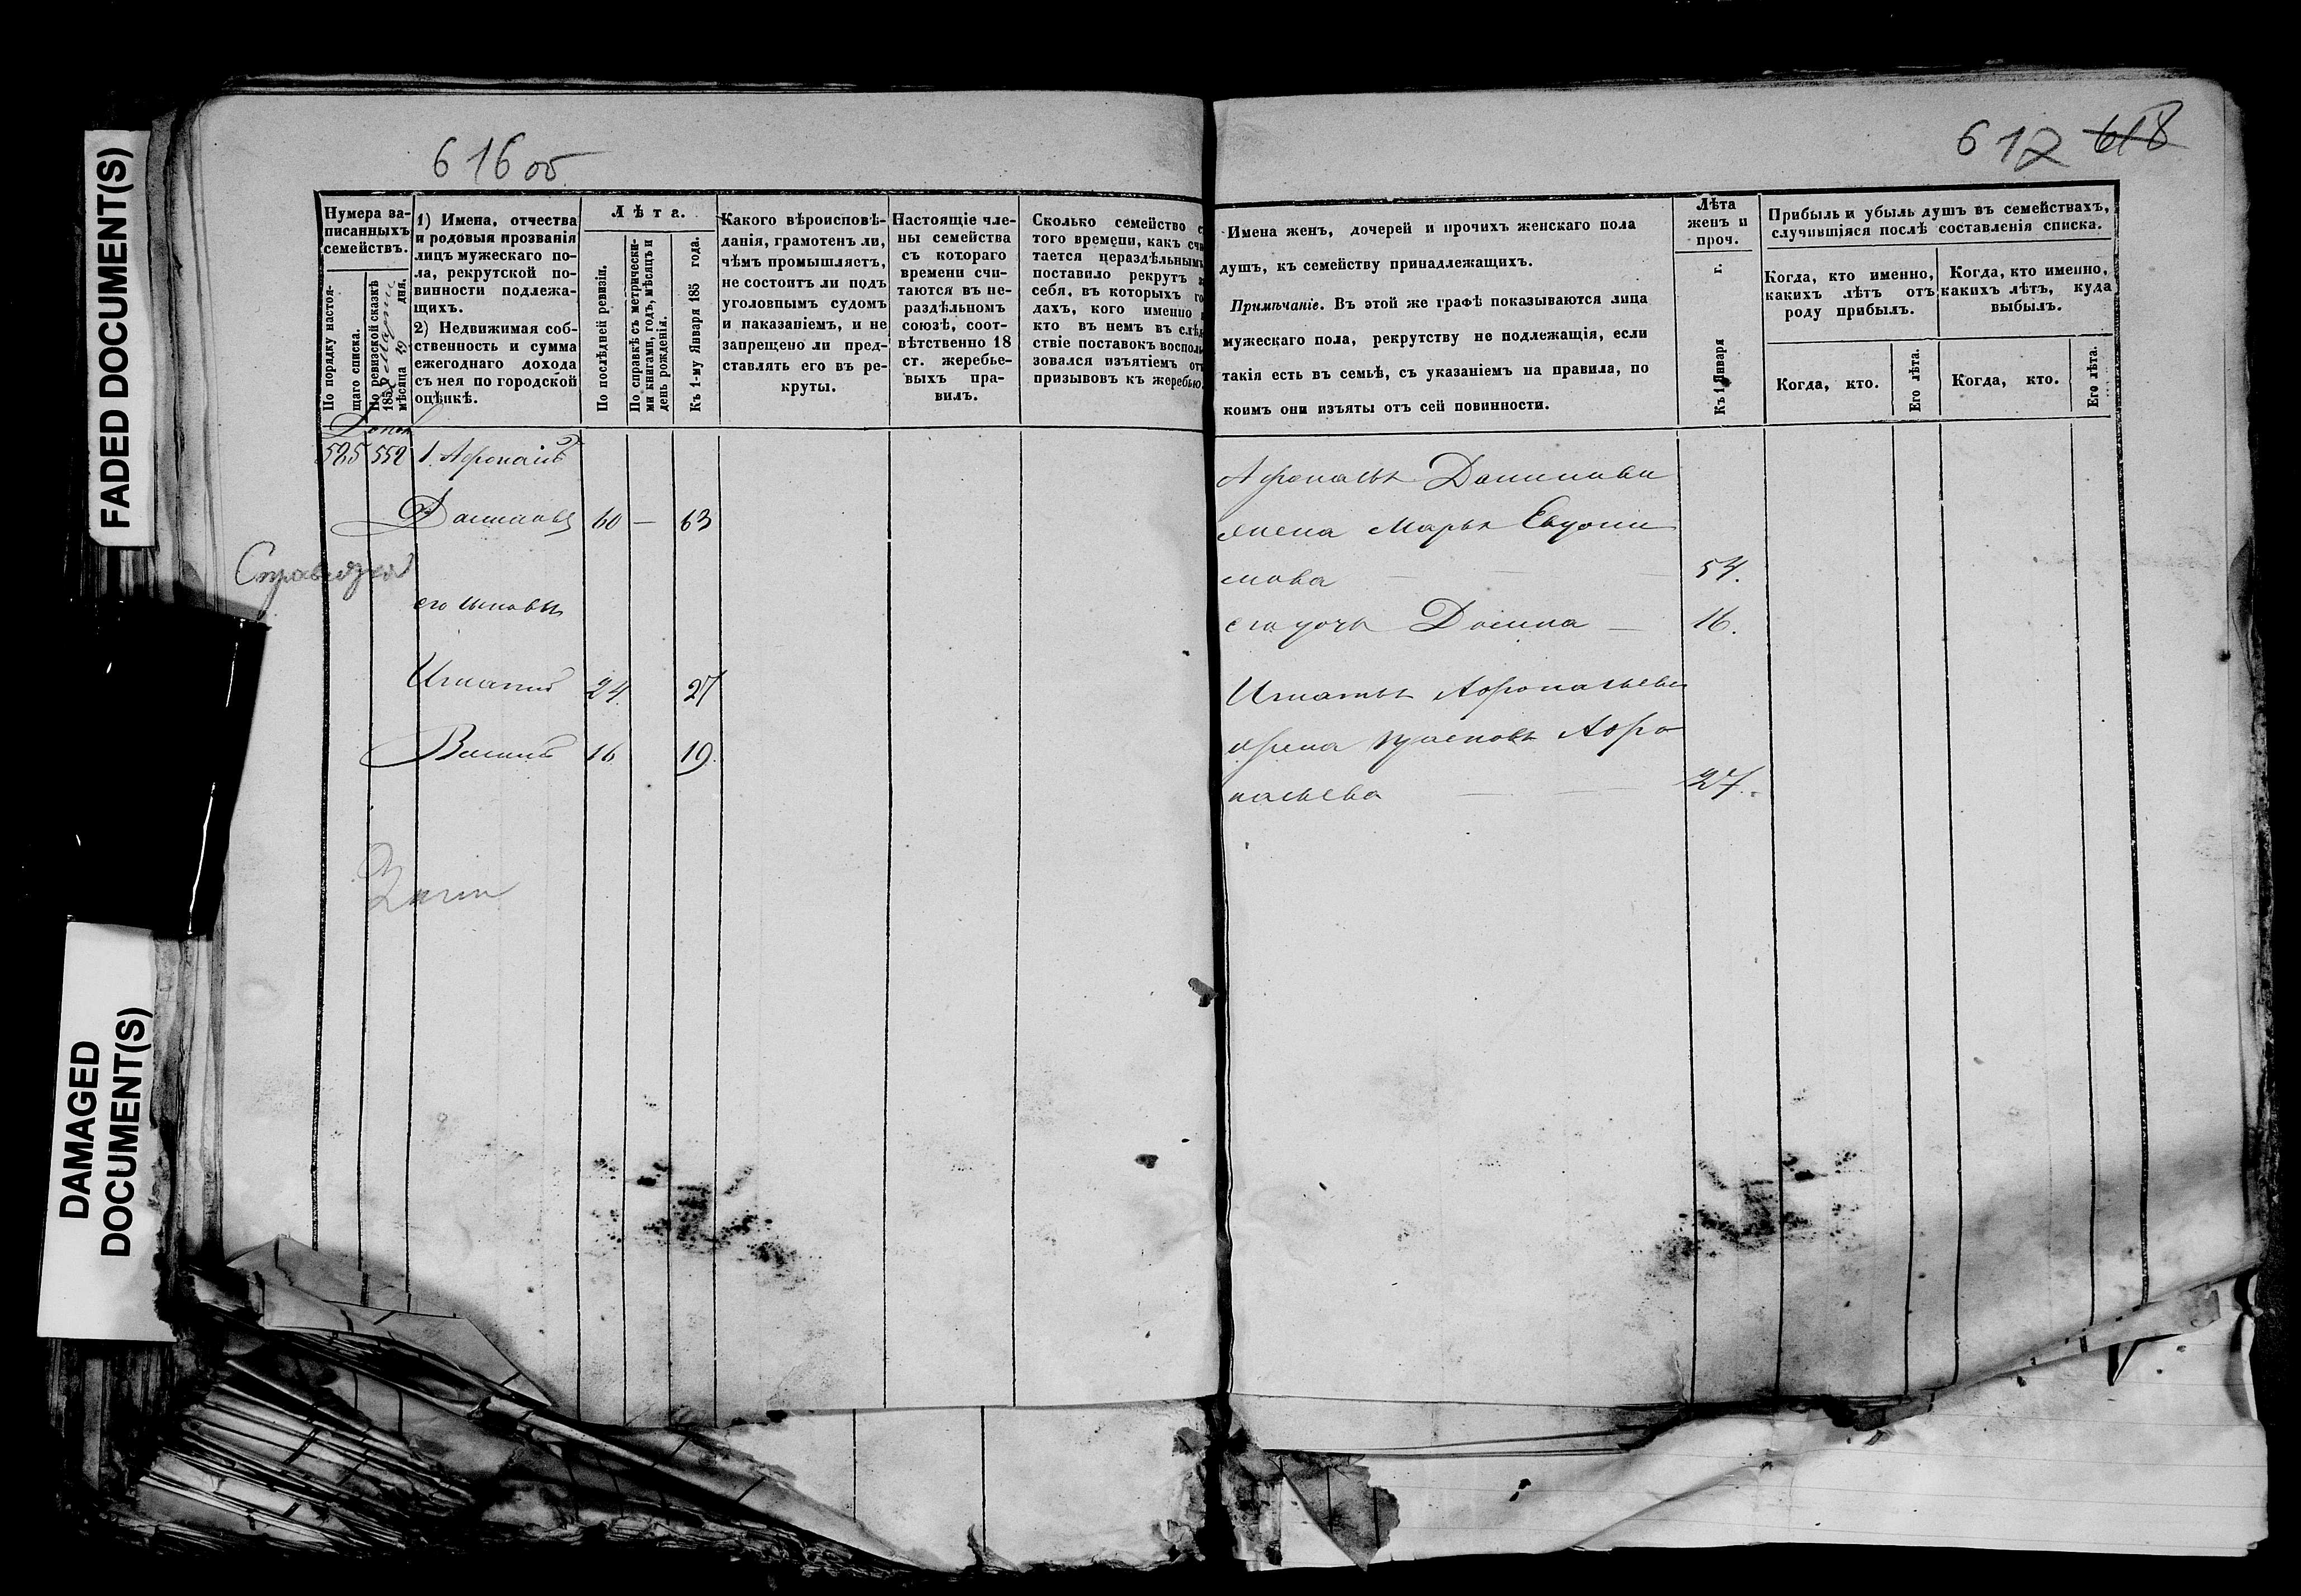 FADED DOCUMENT(S)
DAMAGED
DOCUMENT(S)
616 об
Нумера за-
писанныхъ
семействъ.
По порядку настоя-
щаго списка.
По ревизской сказкѣ
185 Марта
мѣсяца 19 дня.
1) Имена, отчества
и родовыя прозванія
лицъ мужескаго по-
ла, рекрутской по-
винности подлежа-
щихъ.
2) Недвижимая соб-
ственность и сумма
ежегоднаго дохода
съ нея по городской
оцѣнкѣ.
Лѣта.
По послѣдней ревизіи.
По справкѣ съ метрически-
ми книгами, годъ, мѣсяцъ и
день рожденія.
Къ 1-му Января 185 года.
Какого вѣроисповѣ-
данія, грамотенъ ли,
чѣмъ промышляетъ,
не состоитъ ли подъ
уголовнымъ судомъ
и наказаніемъ, и не
запрещено ли пред-
ставлять его въ ре-
круты.
Настоящіе чле-
ны семейства
съ котораго
времени счи-
таются въ не-
раздѣльномъ
союзѣ, соот-
вѣтственно 18
ст. жеребье-
выхъ пра-
вилъ.
Сколько семейство с
того времени, какъ счи
тается нераздѣльнымъ
поставило рекрутъ з
себя, въ которыхъ го
дахъ, кого именно и
кто въ немъ въ слѣд
ствіе поставокъ восполь
зовался изъятіемъ отъ
призывовъ къ жеребью.
525 552 1. Афонасій
Даниловъ 60 — 63
его сыновья
Игнатій 24 27
Василій 16 19.
617 618
Имена женъ, дочерей и прочихъ женскаго пола
душъ, къ семейству принадлежащихъ.
Примѣчаніе. Въ этой же графѣ показываются лица
мужескаго пола, рекрутству не подлежащія, если
такія есть въ семьѣ, съ указаніемъ на правила, по
коимъ они изъяты отъ сей повинности.
Лѣта
женъ и
проч.
Къ 1 Января г.
Прибыль и убыль душъ въ семействахъ,
случившіяся послѣ составленія списка.
Когда, кто именно,
какихъ лѣтъ отъ
роду прибылъ.
Когда, кто именно,
какихъ лѣтъ, куда
выбылъ.
Когда, кто.
Его лѣта.
Когда, кто.
Его лѣта.
Афонасья Данилова
жена Марья Евдоки
мова 54.
его дочь Домна 16.
Игнатья Афонасьева
жена Афо
насьева 27.